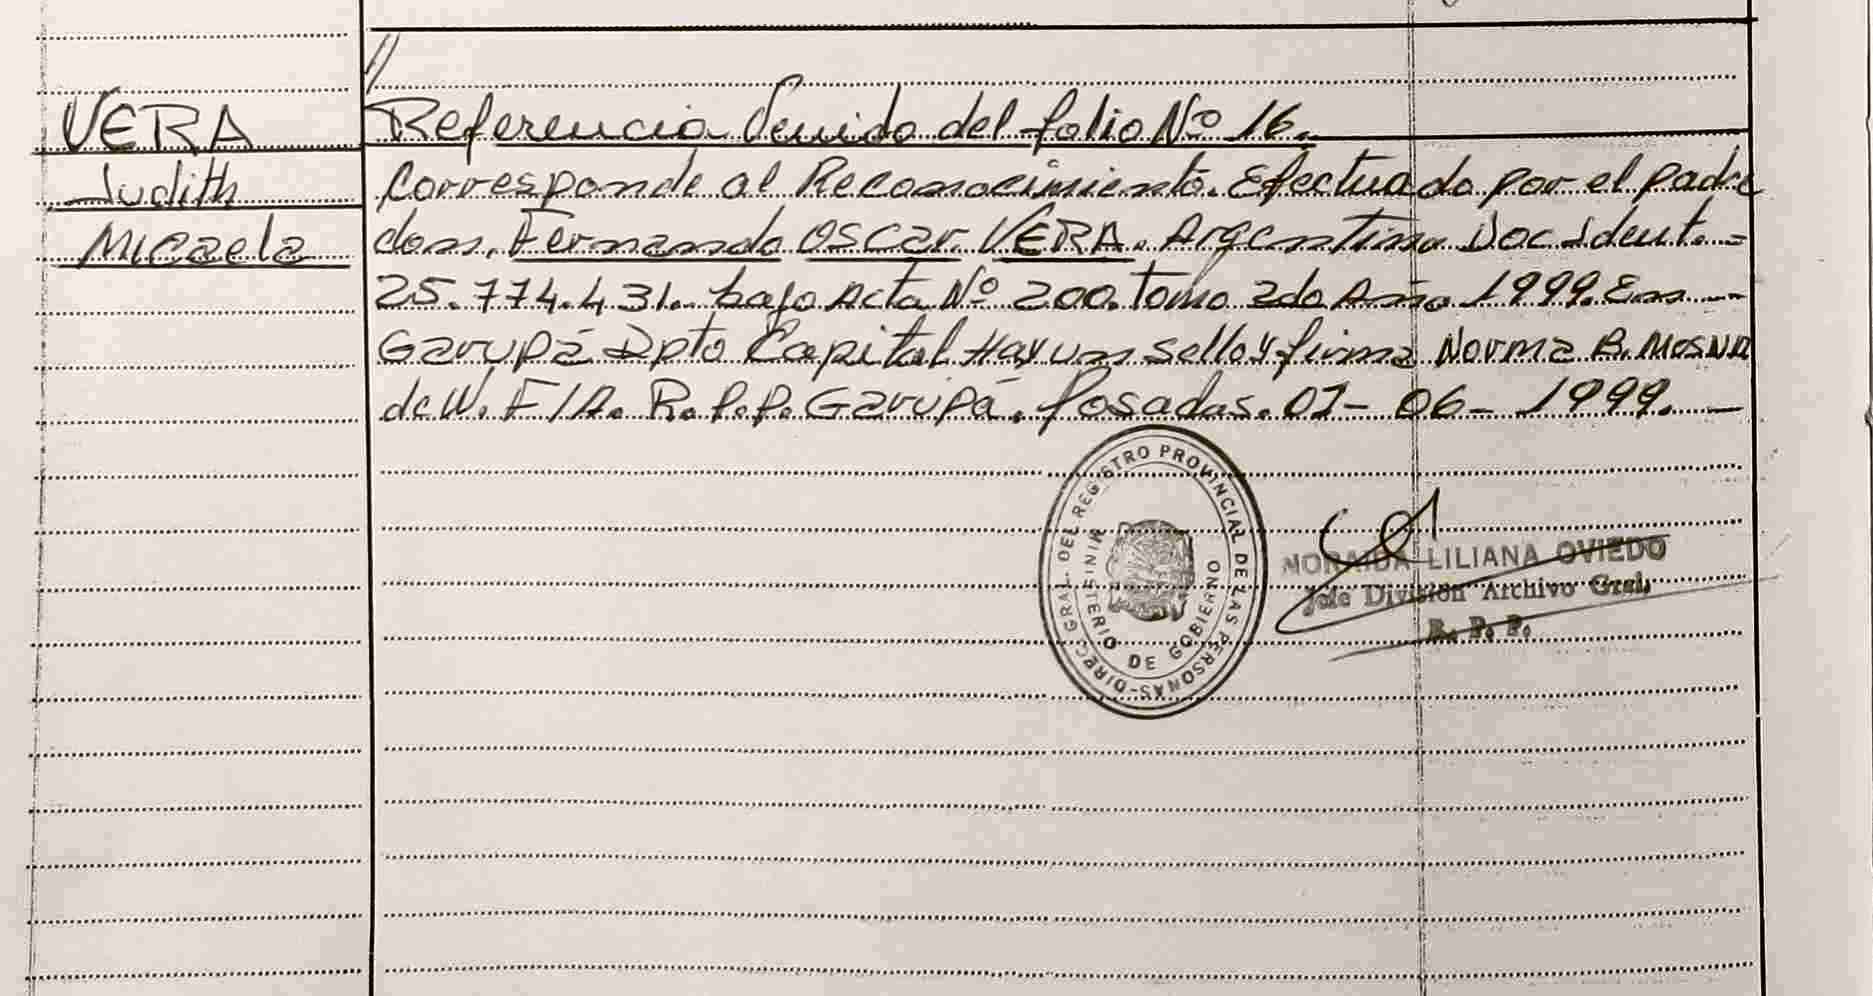 //
VERA
Judith
Micaela
Referencia Venido del folio Nº 16.
Corresponde al Reconocimiento. Efectuado por el padre
don, Fernando Oscar VERA. Argentino Doc Ident. =
25.774.431. bajo Acta Nº 200. Tomo 2do Año 1999. En —
Garupá Dpto Capital Hay un sello y firma Norma B. Mosna
de W. F/A. R.P.P. Garupá. Posadas. 07-06-1999. —
DIREC. GRAL. DEL REGISTRO PROVINCIAL DE LAS PERSONAS-
MINISTERIO DE GOBIERNO
NORAIDA LILIANA OVIEDO
Jefe División Archivo Gral.
R. P. P.